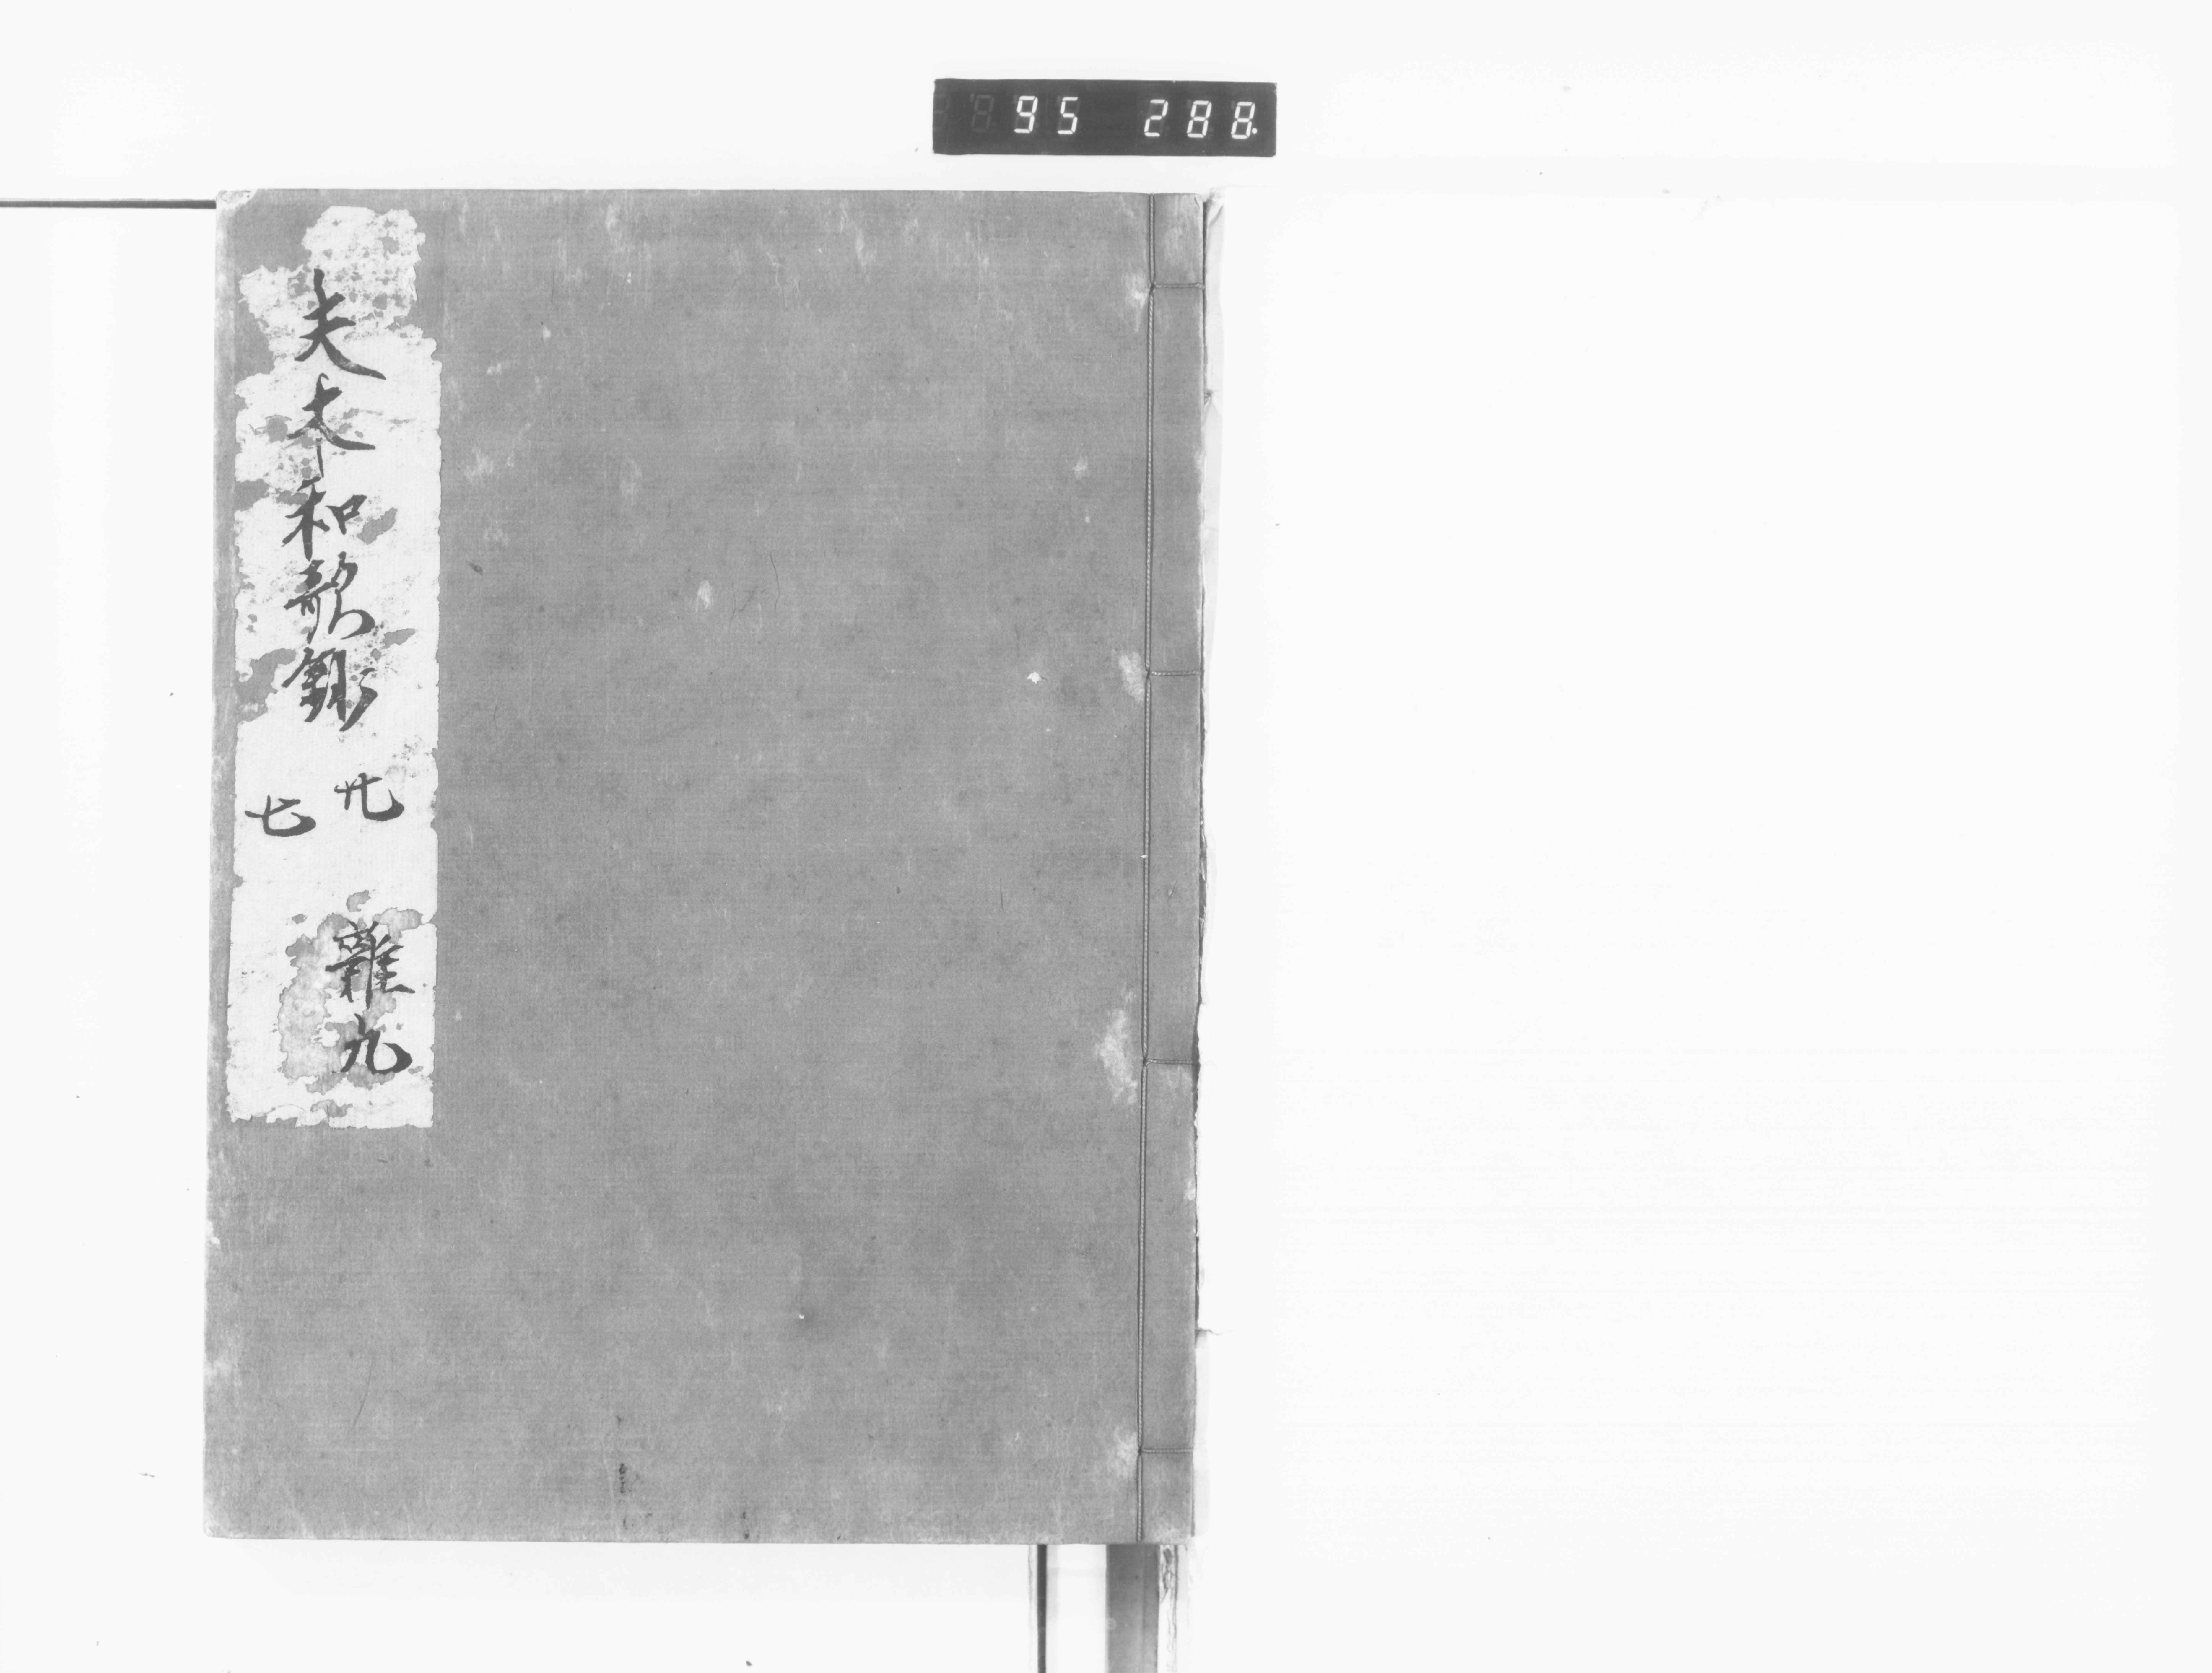 95 288
夫木和歌鈔 廿七 雜九